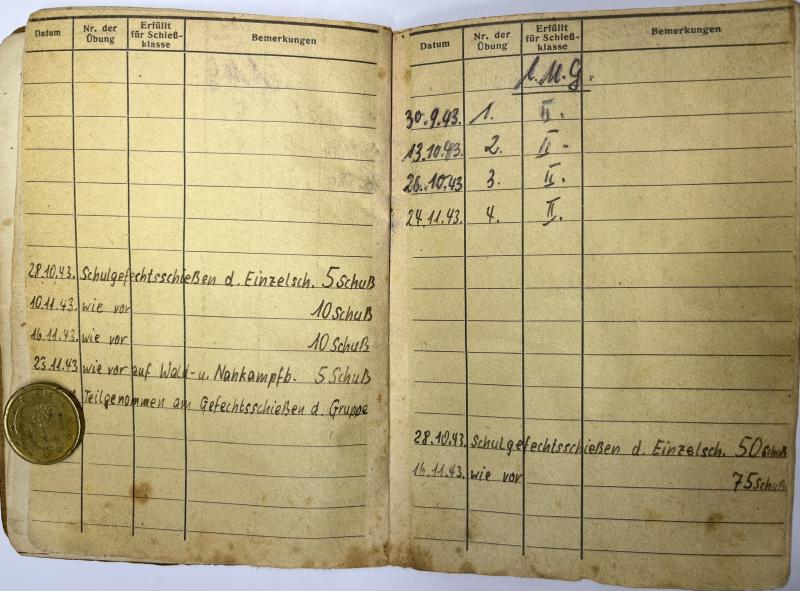 Datum Nr. der Übung Erfüllt für Schieß-klasse Bemerkungen
28.10.43. Schulgefechtsschießen d. Einzelsch. 5 Schuß
10.11.43. wie vor 10 Schuß
16.11.43. wie vor 10 Schuß
23.11.43 wie vor auf Wald- u. Nahkampfb. 5 Schuß
Teilgenommen am Gefechtsschießen d. Gruppe
Datum Nr. der Übung Erfüllt für Schieß-klasse Bemerkungen
l. M. G.
30.9.43. 1. II.
13.10.43. 2. II.
26.10.43 3. II.
24.11.43. 4. II.
28.10.43. Schulgefechtsschießen d. Einzelsch. 50 Schuß
16.11.43. wie vor 75 Schuß